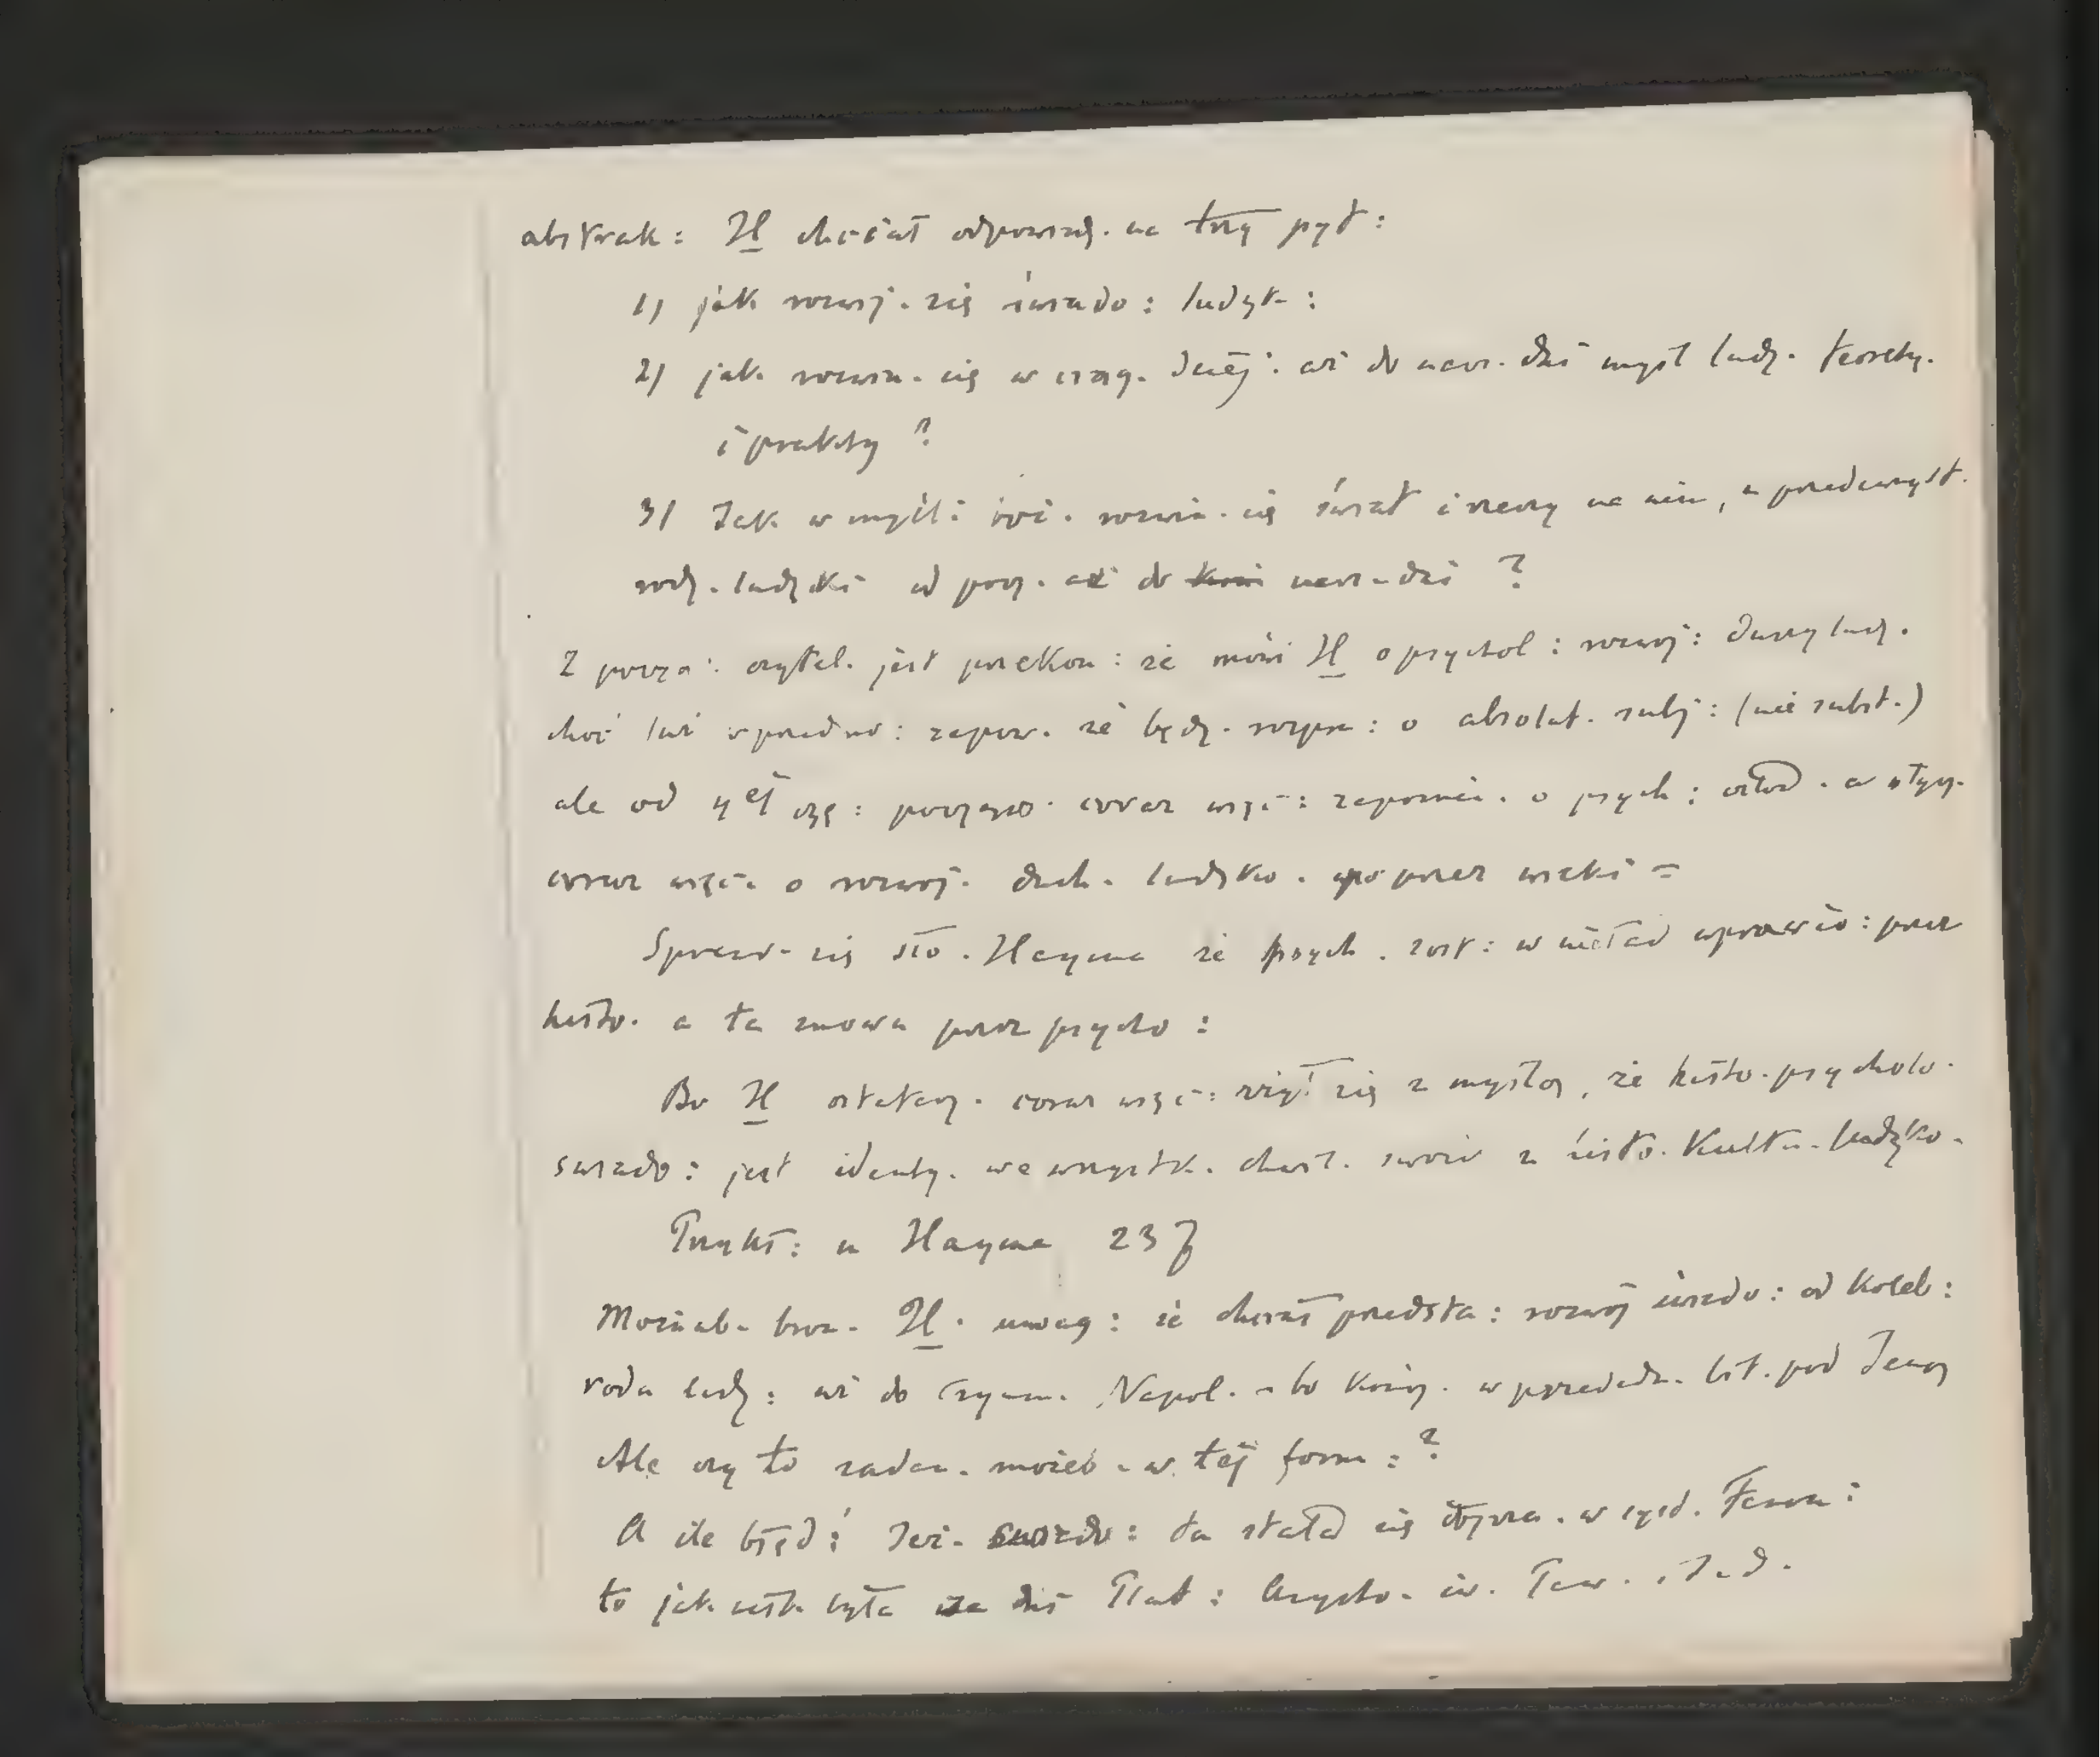 abstrak: H chciał odpowiedz. na trzy pyt:
1) jak rozwij. się świado: ludzk:
2) jak rozwin. się w ciąg. dziej: aż do naw. dzi myśl ludz. teorety.
i prakty ?
3) Jak w myśli: roz. rozwin. się świat i rzeczy na nim, a przedewszyst.
rodz. ludzki od pocz. aż do naw. dzi ?
Z pocza: czytel. jest przekon: że mówi H o psychol: rozwoj: duszy ludz.
choć w przedmo: zapow. że będz. rozpra: o absolut. subj: (nie subst.)
ale od 4 ej czę: począws. coraz więc: zapomin. o psych: człow. a słysz.
coraz więc. o rozwoj. duch. ludzko. poprzez wieki =
Sprawdz. się sło. Hayma że psych. zost: w nieład wprowadzo: przez
histo. a ta znowu przez psycho:
Bo H ostatecz. coraz więc: zżył się z myślą, że histo. psycholo.
świado: jest identy. we wszystk. chwil. swoich z histo. kultu. ludzko.
Przykł: u Hayma 237
Możnab. bron. H. uwag: że chciał przedsta: rozwój świado: od koleb:
rodu ludz: aż do Napol. bo kończ. w przededn. bit. pod Jeną
Ale czy to zadan. możeb. w tej form: ?
A ile błęd! Jeż. świado: ta stała się w syst.
to jak była dziś Plat: Arysto. św. Tom. i t. d.